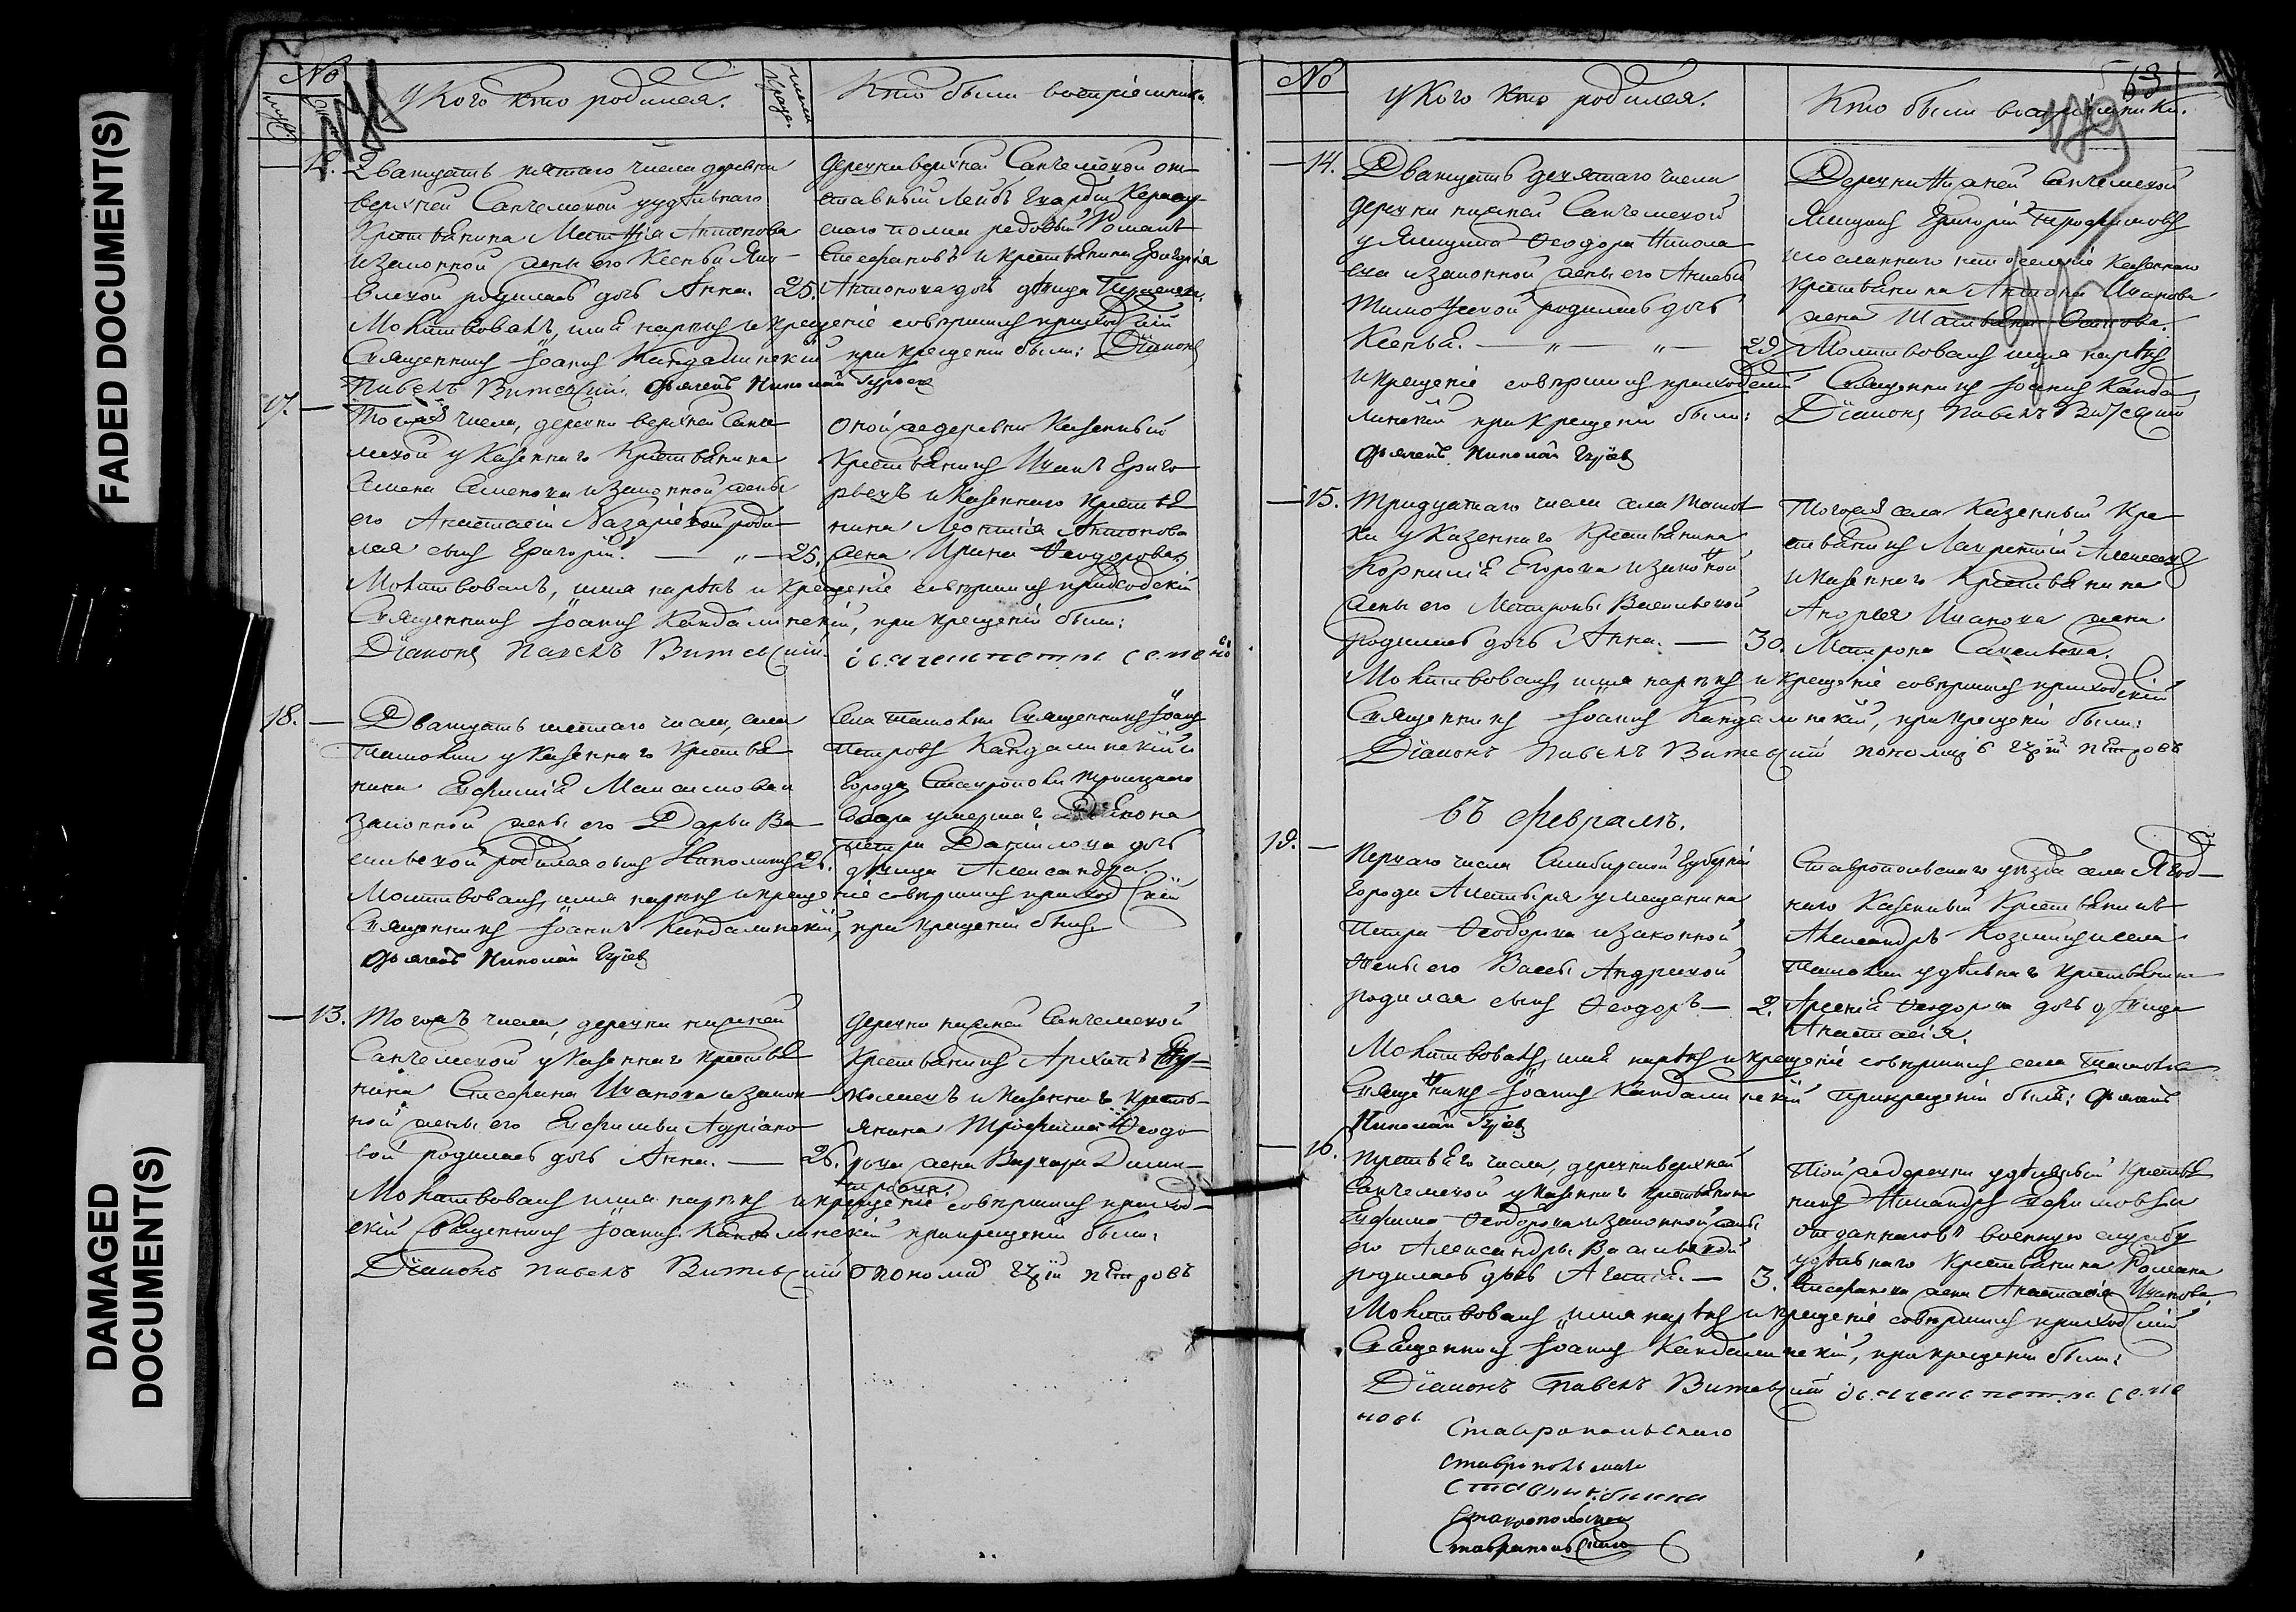 FADED DOCUMENT(S)
DAMAGED
DOCUMENT(S)
№
У кого кто родился.
Кто были воспріемники.
12. Дватцать пятаго числа деревни
верхней Санчелеевой у удѣльнаго
Крестьянина Матвѣя Антонова
и законной жены его Ксеньи Яко-
влевой родилась дочь Анна. 25.
Деревни верхней Санчелеевой от-
ставный Лейбъ Гвардіи
полка редовый Романъ
Стефановъ и крестьянина Григорія
Антонова дочь дѣвица
Молитвовалъ, имя нарекъ и крещеніе совершилъ приходскій
Священникъ Іоаннъ Кандалинскій при крещеніи были: Діаконъ
Павелъ Витевскій. Дьячекъ Николай Гурьевъ
17. Тогожъ числа, деревни верхней Санче-
леевой у Казеннаго Крестьянина
Семена Семенова и законной жены
его Анастасіи Назаріевой роди-
лся сынъ Григорій. — „ — 25.
Оной же деревни Казенный
Крестьянинъ Иванъ Григо-
рьевъ и Казеннаго Крестья
нина Леонтія Антонова
жена Ирина Ѳеодорова.
Молитвовалъ, имя нарекъ и крещеніе совершилъ приходскій
Священникъ Іоаннъ Кандалинскій, при крещеніи были:
Діаконъ Павелъ Витевскій. дьячекъ петръ семено
18. Дватцать шестаго числа, села
Ташолки у Казеннаго Крестья
нина Евфимія Максимова и
законной жены его Дарьи Ва-
сильевой родился сынъ Николай 26.
Села Ташолки Священникъ Іоаннъ
Петровъ Кандалинскій и
города Ставрополя Троицкаго
собора умершаго Діакона
Петра Данилова дочь
дѣвица Александра.
Молитвовалъ, имя нарекъ и крещеніе совершилъ приходскій
Священникъ Іоаннъ Кандалинскій, при крещеніи былъ
Дьячекъ Николай Гурьевъ
13. Тогожъ числа, деревни нижней
Санчелеевой у Казеннаго Крестья
нина Стефана Иванова и закон-
ной жены его Евфимьи Адріано-
вой родилась дочь Анна. — 26.
Деревни нижней Санчелеевой
Крестьянинъ Архипъ
и Казеннаго Кресть-
янина Трофима Ѳеодо-
рова жена Варвара Дими-
тріева.
Молитвовалъ имя нарекъ и крещеніе совершилъ приход-
скій Священникъ Іоаннъ Кандалинскій при крещеніи были:
Діаконъ Павелъ Витевскій пономарь Гурій петровъ
№
у Кого Кто родился.
Кто были воспріемники.
63
14. Дватцать девятаго числа
деревни нижней Санчелеевой
у Ямщика Ѳеодора Никола-
ева и законной жены его Акилины
Тимоѳеевой родилась дочь
Ксенья. — „ — „ — 29.
Деревни Нижней Санчелеевой
Ямщикъ Григорій Трофимовъ
и на поселеніе Казеннаго
Крестьянина Антона Иванова
жена Татьяна Осипова.
Молитвовалъ имя нарекъ
и крещеніе совершилъ приходскій Священникъ Іоаннъ Канда
линскій при крещеніи были: Діаконъ Павелъ Витевскій
Дьячекъ Николай Гурьевъ
15. Тридцатаго числа села Ташол
ки у Казеннаго Крестьянина
Корнилія Егорова и законной
жены его Матроны Васильевой
родилась дочь Анна. — 30.
Тогожъ села Казенный Кре-
стьянинъ Лаврентій Алексѣевъ
и Казеннаго Крестьянина
Андрея Иванова жена
Матрона Савельева.
Молитвовалъ, имя нарекъ и крещеніе совершилъ приходскій
Священникъ Іоаннъ Кандалинскій, при крещеніи были:
Діаконъ Павелъ Витевскій пономарь Гурій петровъ
въ февралѣ.
19. Перваго числа Симбирской Губерніи
города у мещанина
Петра Ѳеодорова и законной
жены его Вассы Андреевой
родился сынъ Ѳеодоръ — 2.
Ставропольскаго уѣзда села Ягод-
наго Казенный Крестьянинъ
Александръ Козминъ и села
Ташолки удѣльнаго Крестьянина
Арсенія Ѳеодорова дочь дѣвица
Анастасія.
Молитвовалъ, имя нарекъ и крещеніе совершилъ села Ташолки
Священникъ Іоаннъ Кандалинскій при крещеніи былъ: Дьячекъ
Николай Гурьевъ
16. Третьяго числа, деревни верхней
Санчелеевой у Казеннаго Крестьянина
Евфима Ѳеодорова и законной жены
его Александры Васильевой
родилась дочь Агафія. — 3.
Той же деревни удѣльный Крестья
нинъ Никандръ Ефимовъ и
отданнаго въ военную службу
удѣльнаго Крестьянина Романа
Стефанова жена Анастасія Иванова.
Молитвовалъ, имя нарекъ и крещеніе совершилъ приходскій
Священникъ Іоаннъ Кандалинскій, при крещеніи были:
Діаконъ Павелъ Витевскій дьячекъ петръ семе
новъ
Ставропольскаго
Ставропольскаго
Ставропольскаго
Ставропольскаго